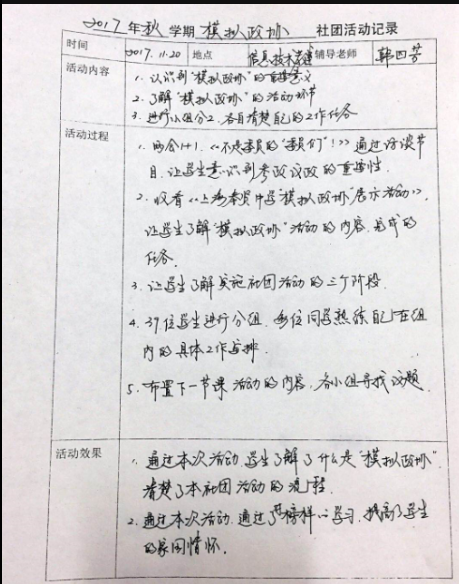 2017年秋学期 模拟政协 社团活动记录
时间 2017.11.20 地点 信息技术 辅导老师 韩四芳
活动内容
1. 认识到"模拟政协"的重要意义
2. 了解"模拟政协"的活动环节
3. 进行小组分工、各自清楚自己的工作任务
活动过程
1. 两会1+1.《不是委员的"委员们"!》通过访谈节
目,让学生意识到参政议政的重要性.
2. 收看《上海市 中学"模拟政协"展示活动》,
让学生了解"模拟政协"活动的内容、完成的
任务.
3. 让学生了解实施社团活动的三个阶段.
4. 37位学生进行分组.每位同学熟练自己在组
内的具体工作安排.
5. 布置下一节课活动的内容,各小组寻找议题.
活动效果
1. 通过本次活动,学生了解了什么是"模拟政协".
清楚了本社团活动的流程.
2. 通过本次活动,通过了榜样 学习,提高了学生
的家国情怀.